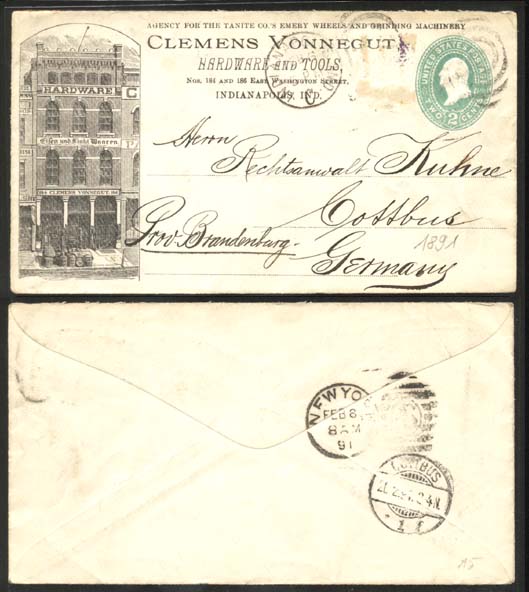 AGENCY FOR THE TANITE CO.'S EMERY WHEELS AND GRINDING MACHINERY
CLEMENS VONNEGUT,
HARDWARE AND TOOLS,
Nos. 184 and 186 East Washington Street,
INDIANAPOLIS, IND.
UNITED STATES POSTAGE
TWO 2 CENTS
HARDWARE C
Eisen und Stahl Waaren
184 CLEMENS VONNEGUT. 186
Herrn
Rechtsanwalt Kuhne
Cottbus
Prov. Brandenburg.
1891
Germany
NEW YO
FEB 8
8 AM
91
COTTBUS